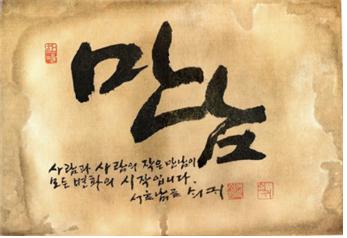 만남
사람과 사람의 작은 만남이
모든 변화의 시작입니다.